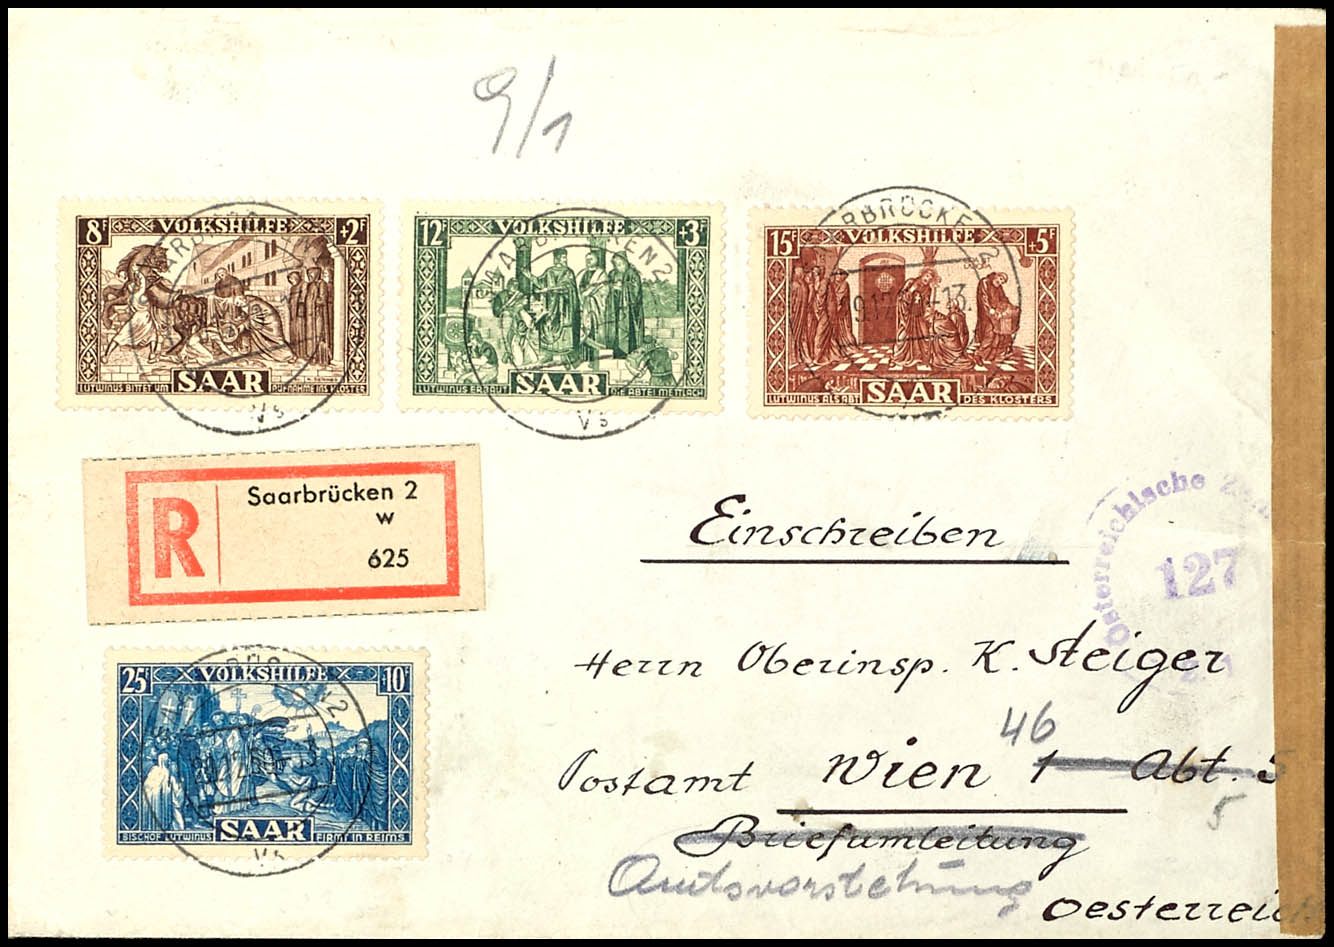 9/1
8F VOLKSHILFE +2F
LUTWINUS BITTET UM SAAR AUFNAHME INS KLOSTER
12F VOLKSHILFE +3F
LUTWINUS ERBAUT SAAR DIE ABTEI METTLACH
15F VOLKSHILFE +5F
LUTWINUS ALS ABT SAAR DES KLOSTERS
RBRÜCKEN 2
Vs
Vs
R
Saarbrücken 2
w
625
Einschreiben
Österreichische
127
Herrn Oberinsp. K. Steiger
46
Postamt Wien 1 Abt. 5
5
Briefumleitung
Amtsvorstehung
Oesterreic
25F VOLKSHILFE +10F
BISCHOF LUTWINUS SAAR FIRMT IN REIMS